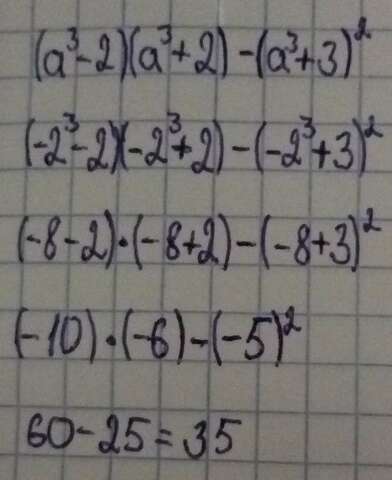 (a³-2)(a³+2)-(a³+3)²
(-2³-2)(-2³+2)-(-2³+3)²
(-8-2)·(-8+2)-(-8+3)²
(-10)·(-6)-(-5)²
60-25=35